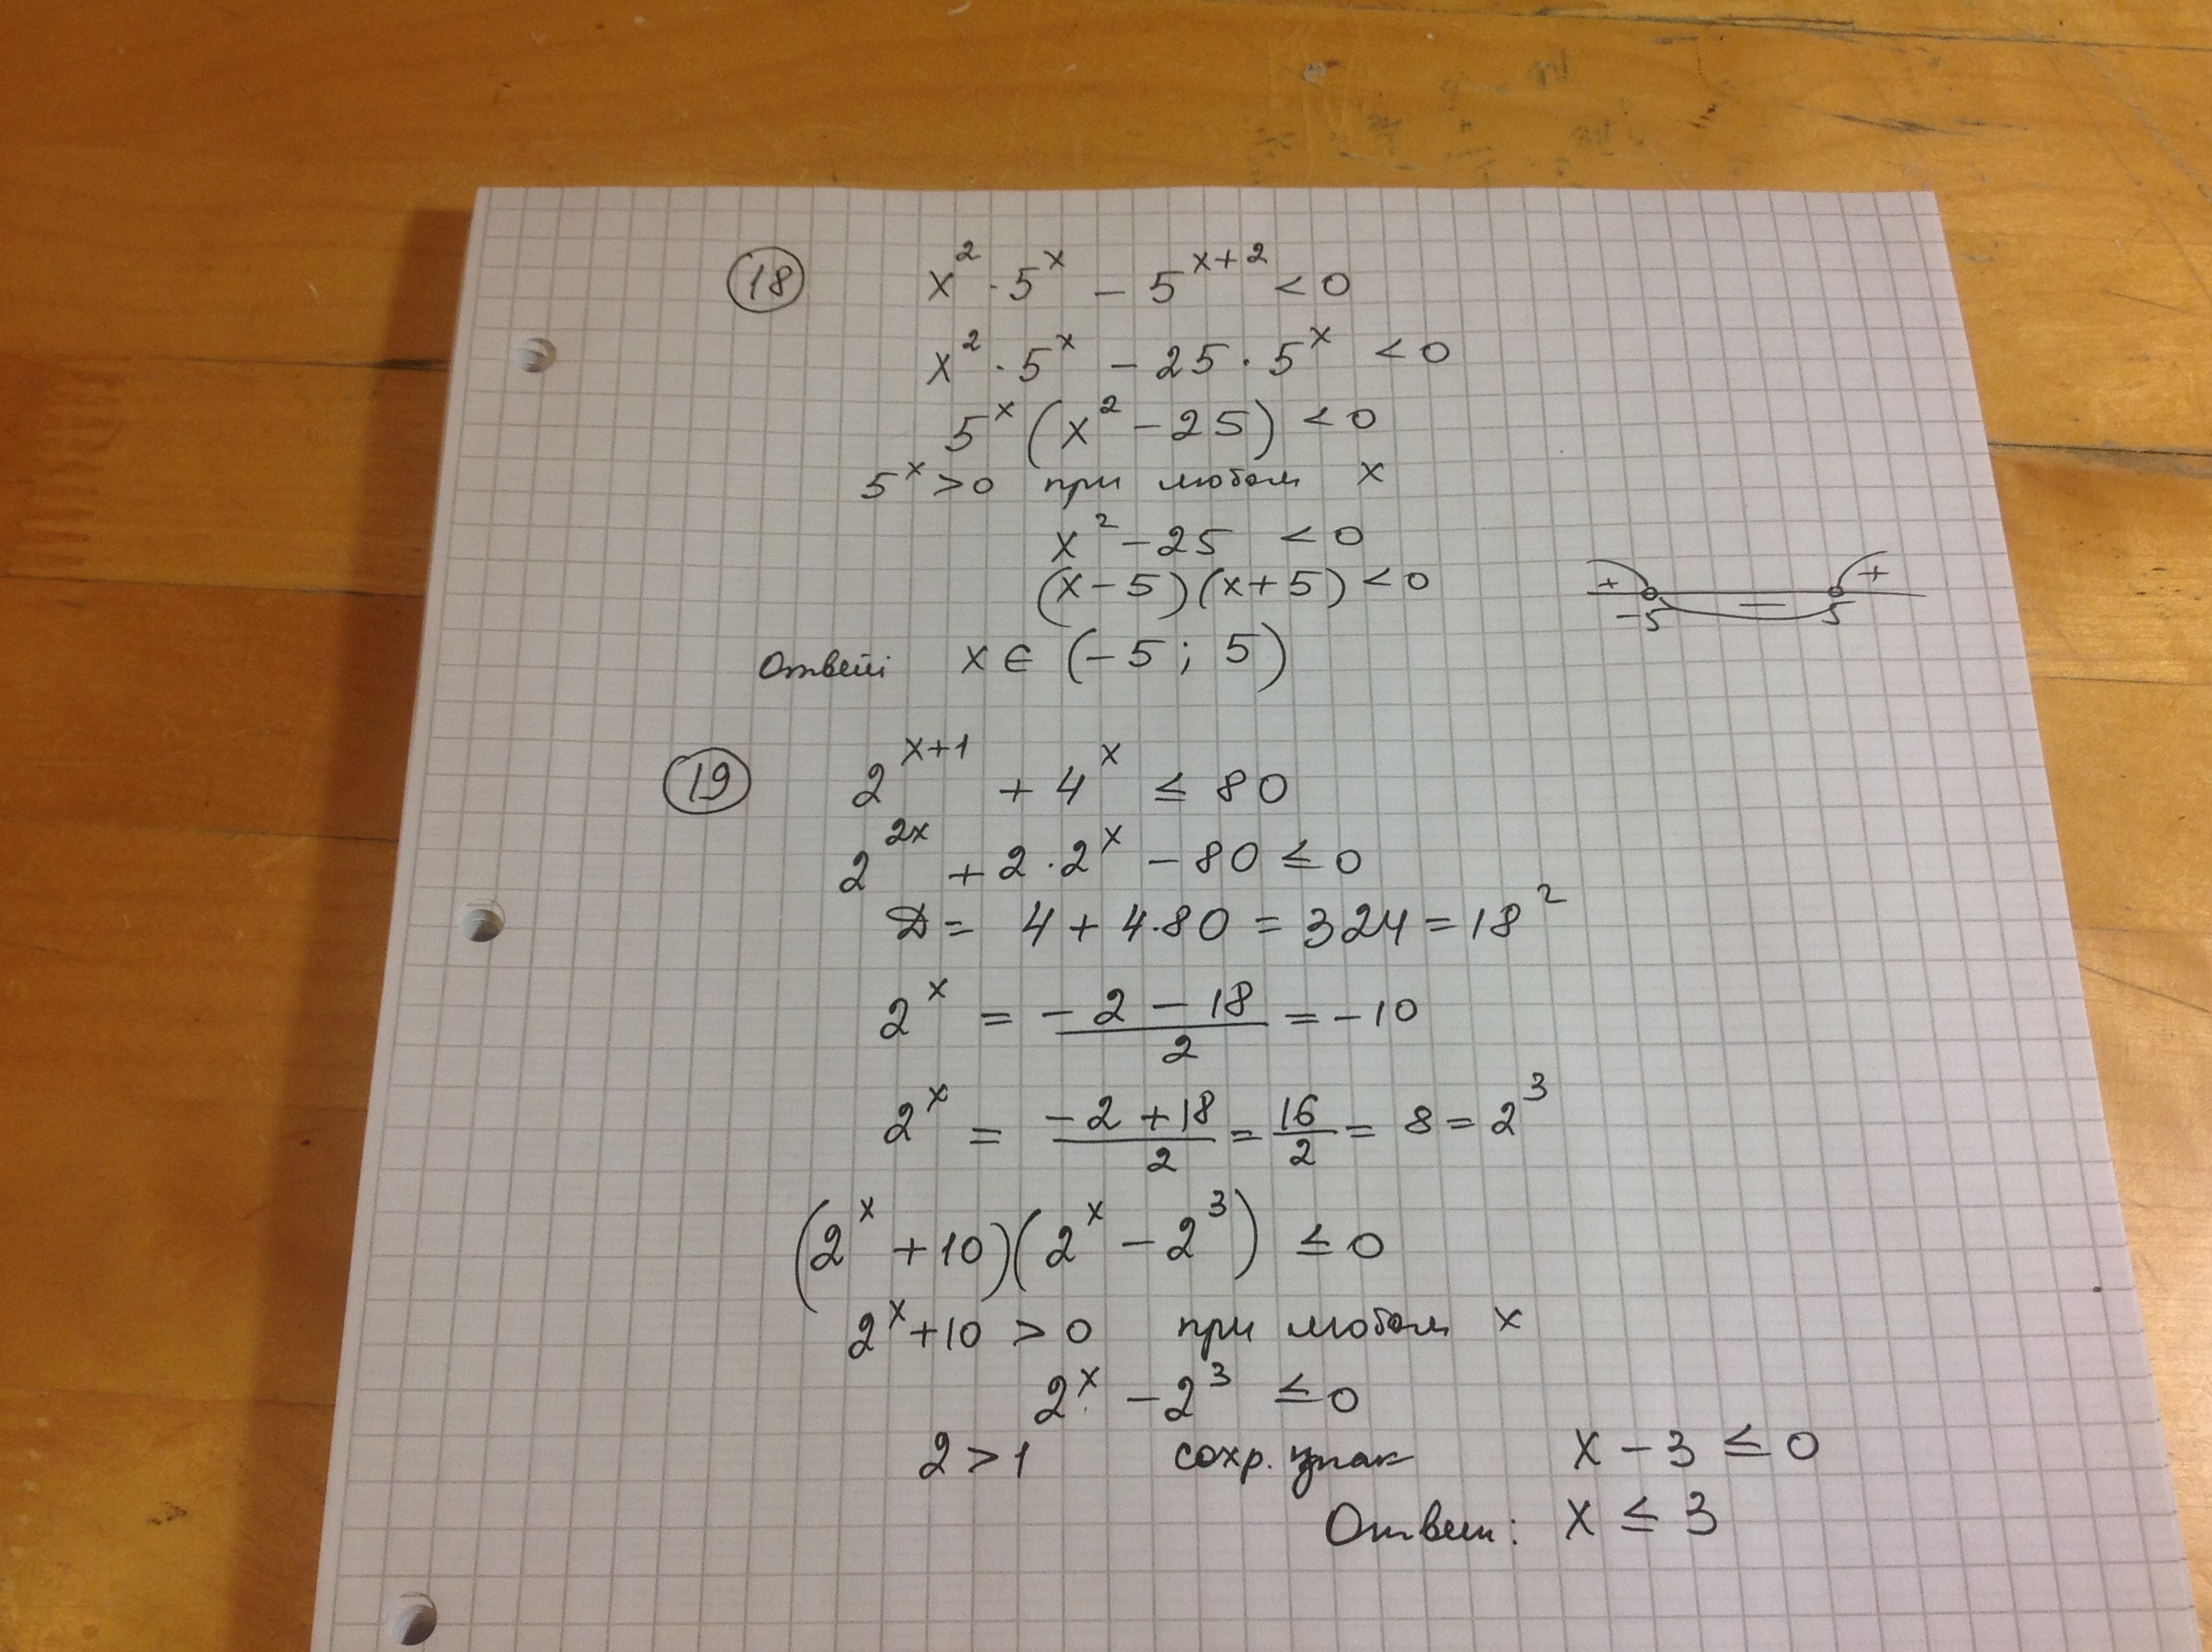 18 x² · 5ˣ − 5ˣ⁺² < 0
x² · 5ˣ − 25 · 5ˣ < 0
5ˣ (x² − 25) < 0
5ˣ > 0 при любом x
x² − 25 < 0
(x − 5)(x + 5) < 0
+ − +
−5 5
Ответ: x ∈ (−5; 5)
19 2ˣ⁺¹ + 4ˣ ≤ 80
2²ˣ + 2 · 2ˣ − 80 ≤ 0
D = 4 + 4·80 = 324 = 18²
2ˣ = (−2 − 18)/2 = −10
2ˣ = (−2 + 18)/2 = 16/2 = 8 = 2³
(2ˣ + 10)(2ˣ − 2³) ≤ 0
2ˣ + 10 > 0 при любом x
2ˣ − 2³ ≤ 0
2 > 1 сохр. знак x − 3 ≤ 0
Ответ: x ≤ 3